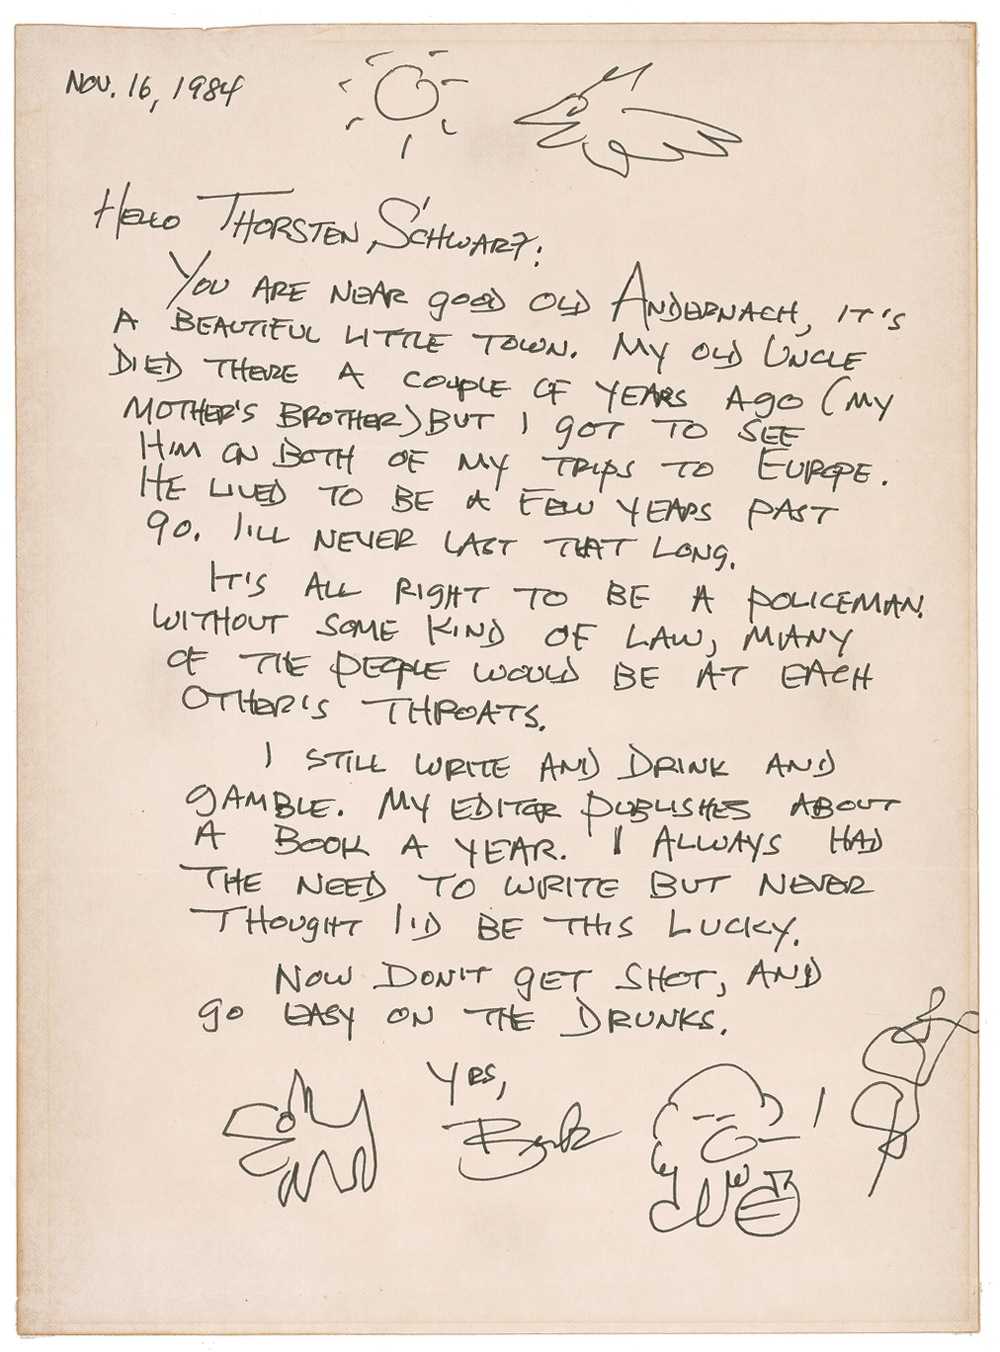 Nov. 16, 1984
Hello Thorsten Schwarz:
You are near good old Andernach, it's
a beautiful little town. My old Uncle
died there a couple of years ago (my
mother's brother) but I got to see
him on both of my trips to Europe.
He lived to be a few years past
90. I'll never last that long.
It's all right to be a policeman.
Without some kind of law, many
of the people would be at each
other's throats.
I still write and drink and
gamble. My editor publishes about
a book a year. I always had
the need to write but never
thought I'd be this lucky.
Now don't get shot, and
go easy on the drunks.
Yes,
Buk